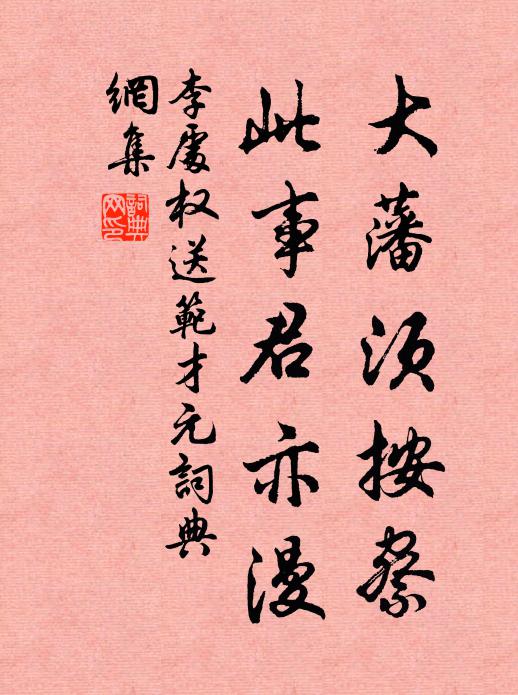 大藩须按察
此事君亦漫
李處权送範才元詞典
網集
詞典
网印